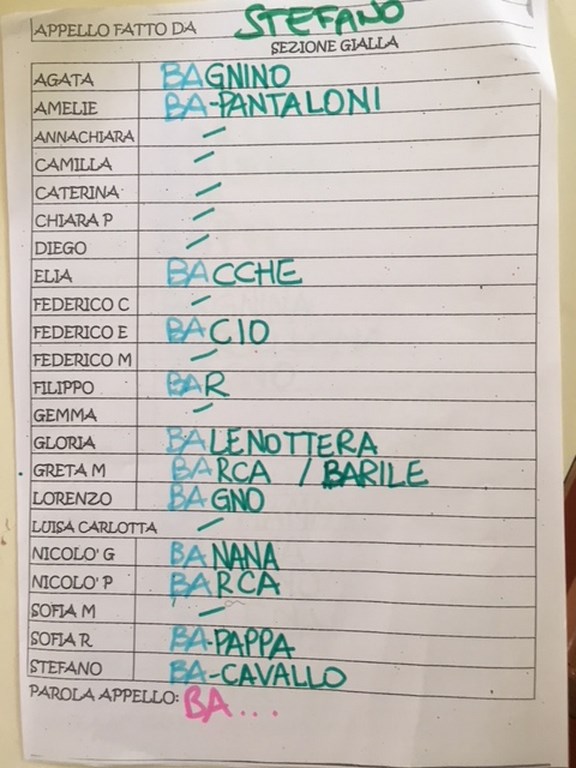 APPELLO FATTO DA STEFANO
SEZIONE GIALLA
AGATA BAGNINO
AMELIE BA-PANTALONI
ANNACHIARA /
CAMILLA /
CATERINA /
CHIARA P /
DIEGO /
ELIA BACCHE
FEDERICO C /
FEDERICO E BACIO
FEDERICO M /
FILIPPO BAR
GEMMA /
GLORIA BALENOTTERA
GRETA M BARCA / BARILE
LORENZO BAGNO
LUISA CARLOTTA /
NICOLO' G BANANA
NICOLO' P BARCA
SOFIA M /
SOFIA R BA-PAPPA
STEFANO BA-CAVALLO
PAROLA APPELLO: BA...